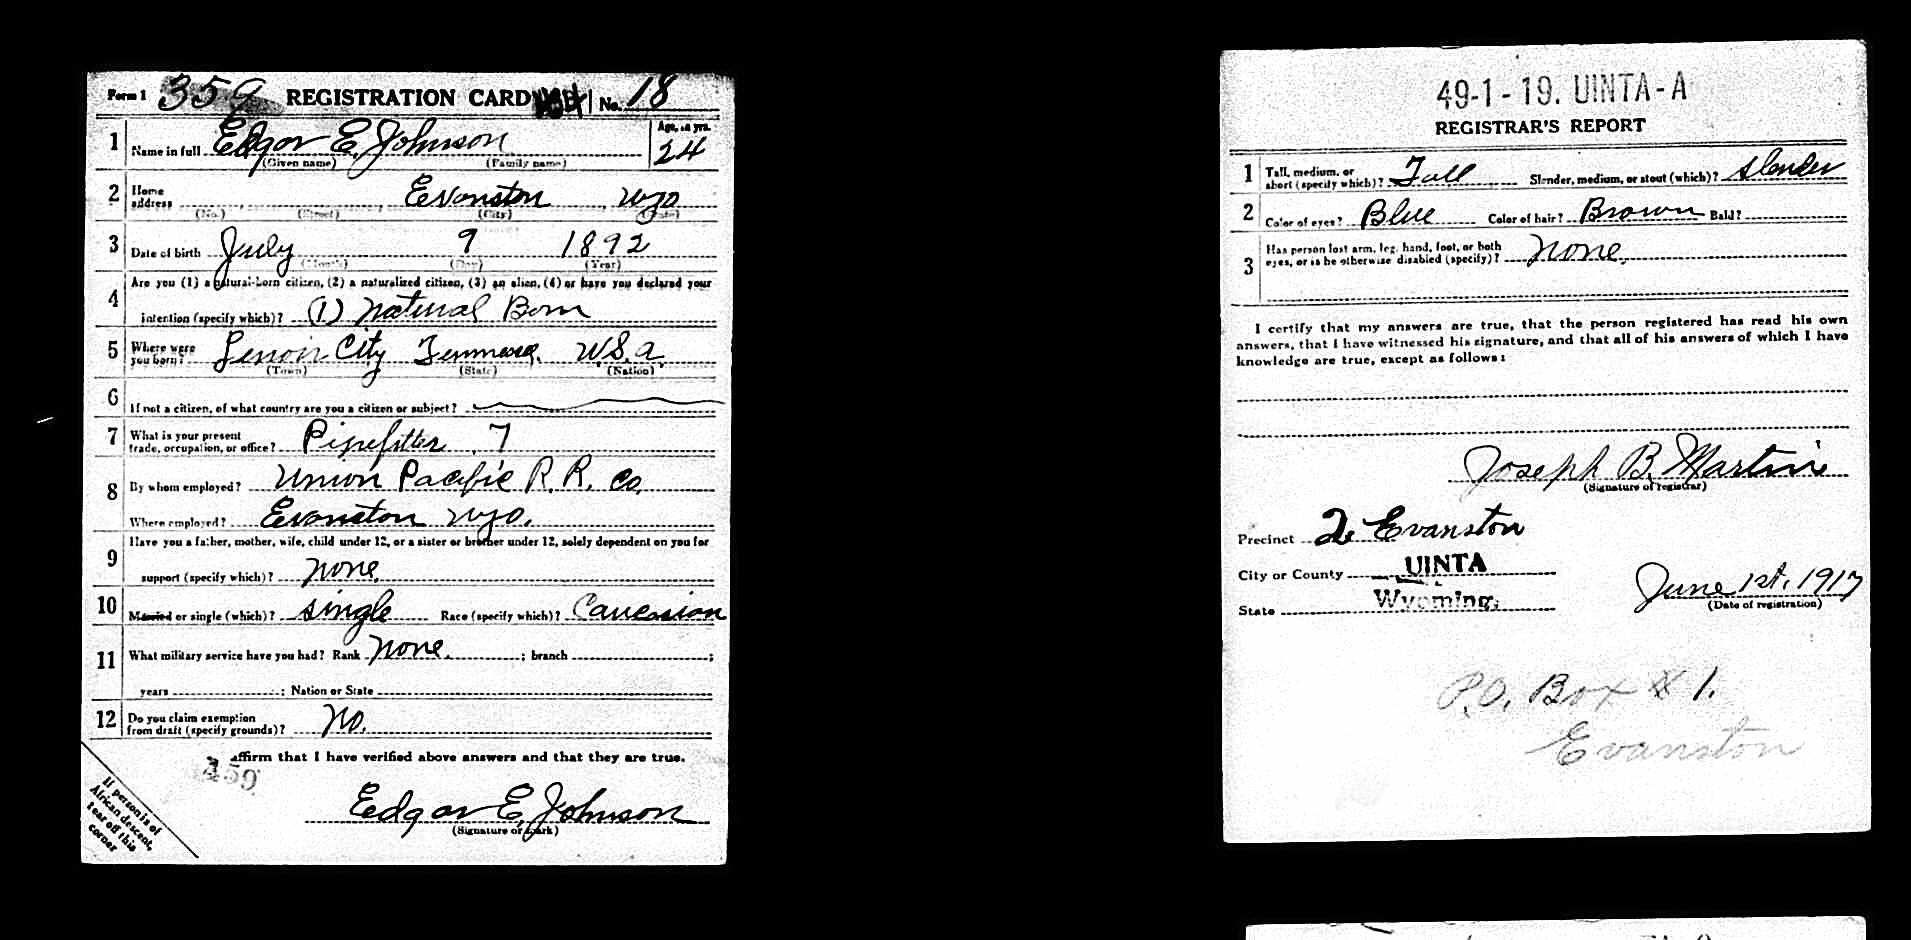 Form 1 359 REGISTRATION CARD No. 18
1 Name in full Edgar E. Johnson Age, in yrs. 24
(Given name) (Family name)
2 Home address Evanston, Wyo
(No.) (Street) (City) (State)
3 Date of birth July 9 1892
(Month) (Day) (Year)
4 Are you (1) a natural-born citizen, (2) a naturalized citizen, (3) an alien, (4) or have you declared your
intention (specify which)? (1) Natural Born
5 Where were you born? Lenoir City Tennessee U.S.A.
(Town) (State) (Nation)
6 If not a citizen, of what country are you a citizen or subject?
7 What is your present trade, occupation, or office? Pipefitter 7
8 By whom employed? Union Pacific R. R. Co.
Where employed? Evanston Wyo.
9 Have you a father, mother, wife, child under 12, or a sister or brother under 12, solely dependent on you for
support (specify which)? None.
10 Married or single (which)? Single Race (specify which)? Caucasion
11 What military service have you had? Rank None. ; branch ;
years ; Nation or State
12 Do you claim exemption from draft (specify grounds)? No.
I affirm that I have verified above answers and that they are true.
459
Edgar E. Johnson
(Signature or mark)
If person is of
African descent,
tear off this
corner
49-1-19. UINTA-A
REGISTRAR'S REPORT
1 Tall, medium, or short (specify which)? Tall Slender, medium, or stout (which)? Slender
2 Color of eyes? Blue Color of hair? Brown Bald?
3 Has person lost arm, leg, hand, foot, or both eyes, or is he otherwise disabled (specify)? None.
I certify that my answers are true, that the person registered has read his own
answers, that I have witnessed his signature, and that all of his answers of which I have
knowledge are true, except as follows:
Joseph B. Martin
(Signature of registrar)
Precinct 2. Evanston
City or County UINTA
State Wyoming.
June 1st. 1917
(Date of registration)
P.O. Box 1.
Evanston